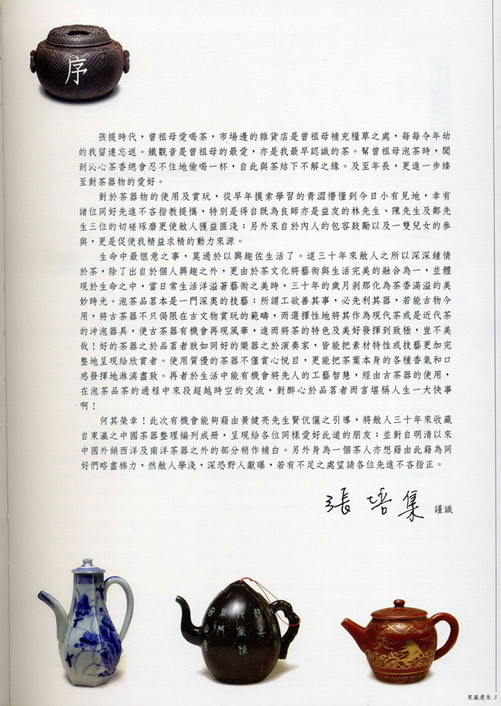 序
孩提時代，曾祖母愛喝茶，市場邊的雜貨店是曾祖母補充糧草之處，每每令年幼
的我留連忘返。鐵觀音是曾祖母的最愛，亦是我最早認識的茶。幫曾祖母泡茶時，聞
到沁心茶香總會忍不住地偷喝一杯，自此與茶結下不解之緣。及至年長，更進一步臻
至對茶器物的愛好。
對於茶器物的使用及賞玩，從早年摸索學習的青澀懵懂到今日小有見地，幸有
諸位同好先進不吝指教提攜，特別是得自既為良師亦是益友的林先生、陳先生及鄭先
生三位的切磋琢磨更使敝人獲益匪淺；另外來自於內人的包容鼓勵以及一雙兒女的參
與，更是促使我精益求精的動力來源。
生命中最愜意之事，莫過於以興趣佐生活了。這三十年來敝人之所以深深鍾情
於茶，除了出自於個人興趣之外，更由於茶文化將藝術與生活完美的融合為一，並體
現於生命之中，當日常生活洋溢著藝術之美時，三十年的歲月剎那化為茶香滿溢的美
妙時光。泡茶品茗本是一門深奧的技藝；所謂工欲善其事，必先利其器，若能古物今
用，將古茶器不只侷限在古文物賞玩的範疇，而選擇性地將其作為現代茶或是近代茶
的沖泡器具，使古茶器有機會再現風華，進而將茶的特色及美好發揮到致極，豈不美
哉！好的茶器之於品茗者就如同好的樂器之於演奏家，皆能把素材特性或技藝更加完
整地呈現給欣賞者。使用質優的茶器不僅賞心悅目，更能把茶葉本身的各種香氣和口
感發揮地淋漓盡致。再者於生活中能有機會將先人的工藝智慧，經由古茶器的使用，
在泡茶品茶的過程中來段超越時空的交流，對醉心於品茗者而言堪稱人生一大快事
啊！
何其榮幸！此次有機會能夠藉由黃健亮先生賢伉儷之引導，將敝人三十年來收藏
自東瀛之中國茶器整理編列成冊，呈現給各位同樣愛好此道的朋友；並對自明清以來
中國外銷西洋及南洋茶器之外的部分稍作補白。另外身為一個茶人亦想藉由此籍為同
好們略盡棉力，然敝人學淺，深恐野人獻曝，若有不足之處望請各位先進不吝指正。
張培集 謹識
東瀛遺朱 5